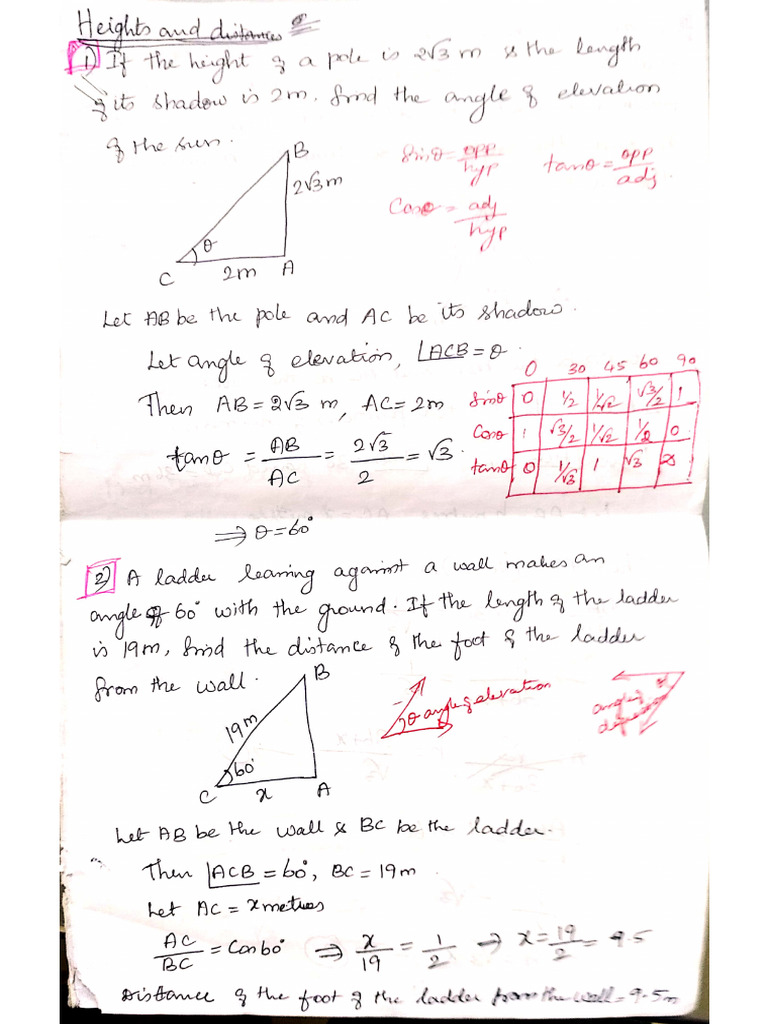 Heights and distances
1) If the height of a pole is 2√3 m & the length
of its shadow is 2m. find the angle of elevation
of the sun.
B
2√3 m
θ
C
2m
A
Sinθ = opp/hyp
tanθ = opp/adj
Cosθ = adj/hyp
Let AB be the pole and AC be its shadow.
Let angle of elevation, ∠ACB = θ.
Then AB = 2√3 m, AC = 2m
tanθ = AB/AC = 2√3/2 = √3.
0 30 45 60 90
Sinθ 0 1/2 1/√2 √3/2 1
Cosθ 1 √3/2 1/√2 1/2 0
tanθ 0 1/√3 1 √3 ∞
⇒ θ = 60°
2) A ladder leaning against a wall makes an
angle of 60° with the ground. If the length of the ladder
is 19m, find the distance of the foot of the ladder
from the wall.
B
19m
60°
C
x
A
θ angle of elevation
angle of
Let AB be the wall & BC be the ladder.
Then ∠ACB = 60°, BC = 19m.
Let AC = x metres
AC/BC = Cos60° ⇒ x/19 = 1/2 ⇒ x = 19/2 = 9.5
Distance of the foot of the ladder from the wall = 9.5m